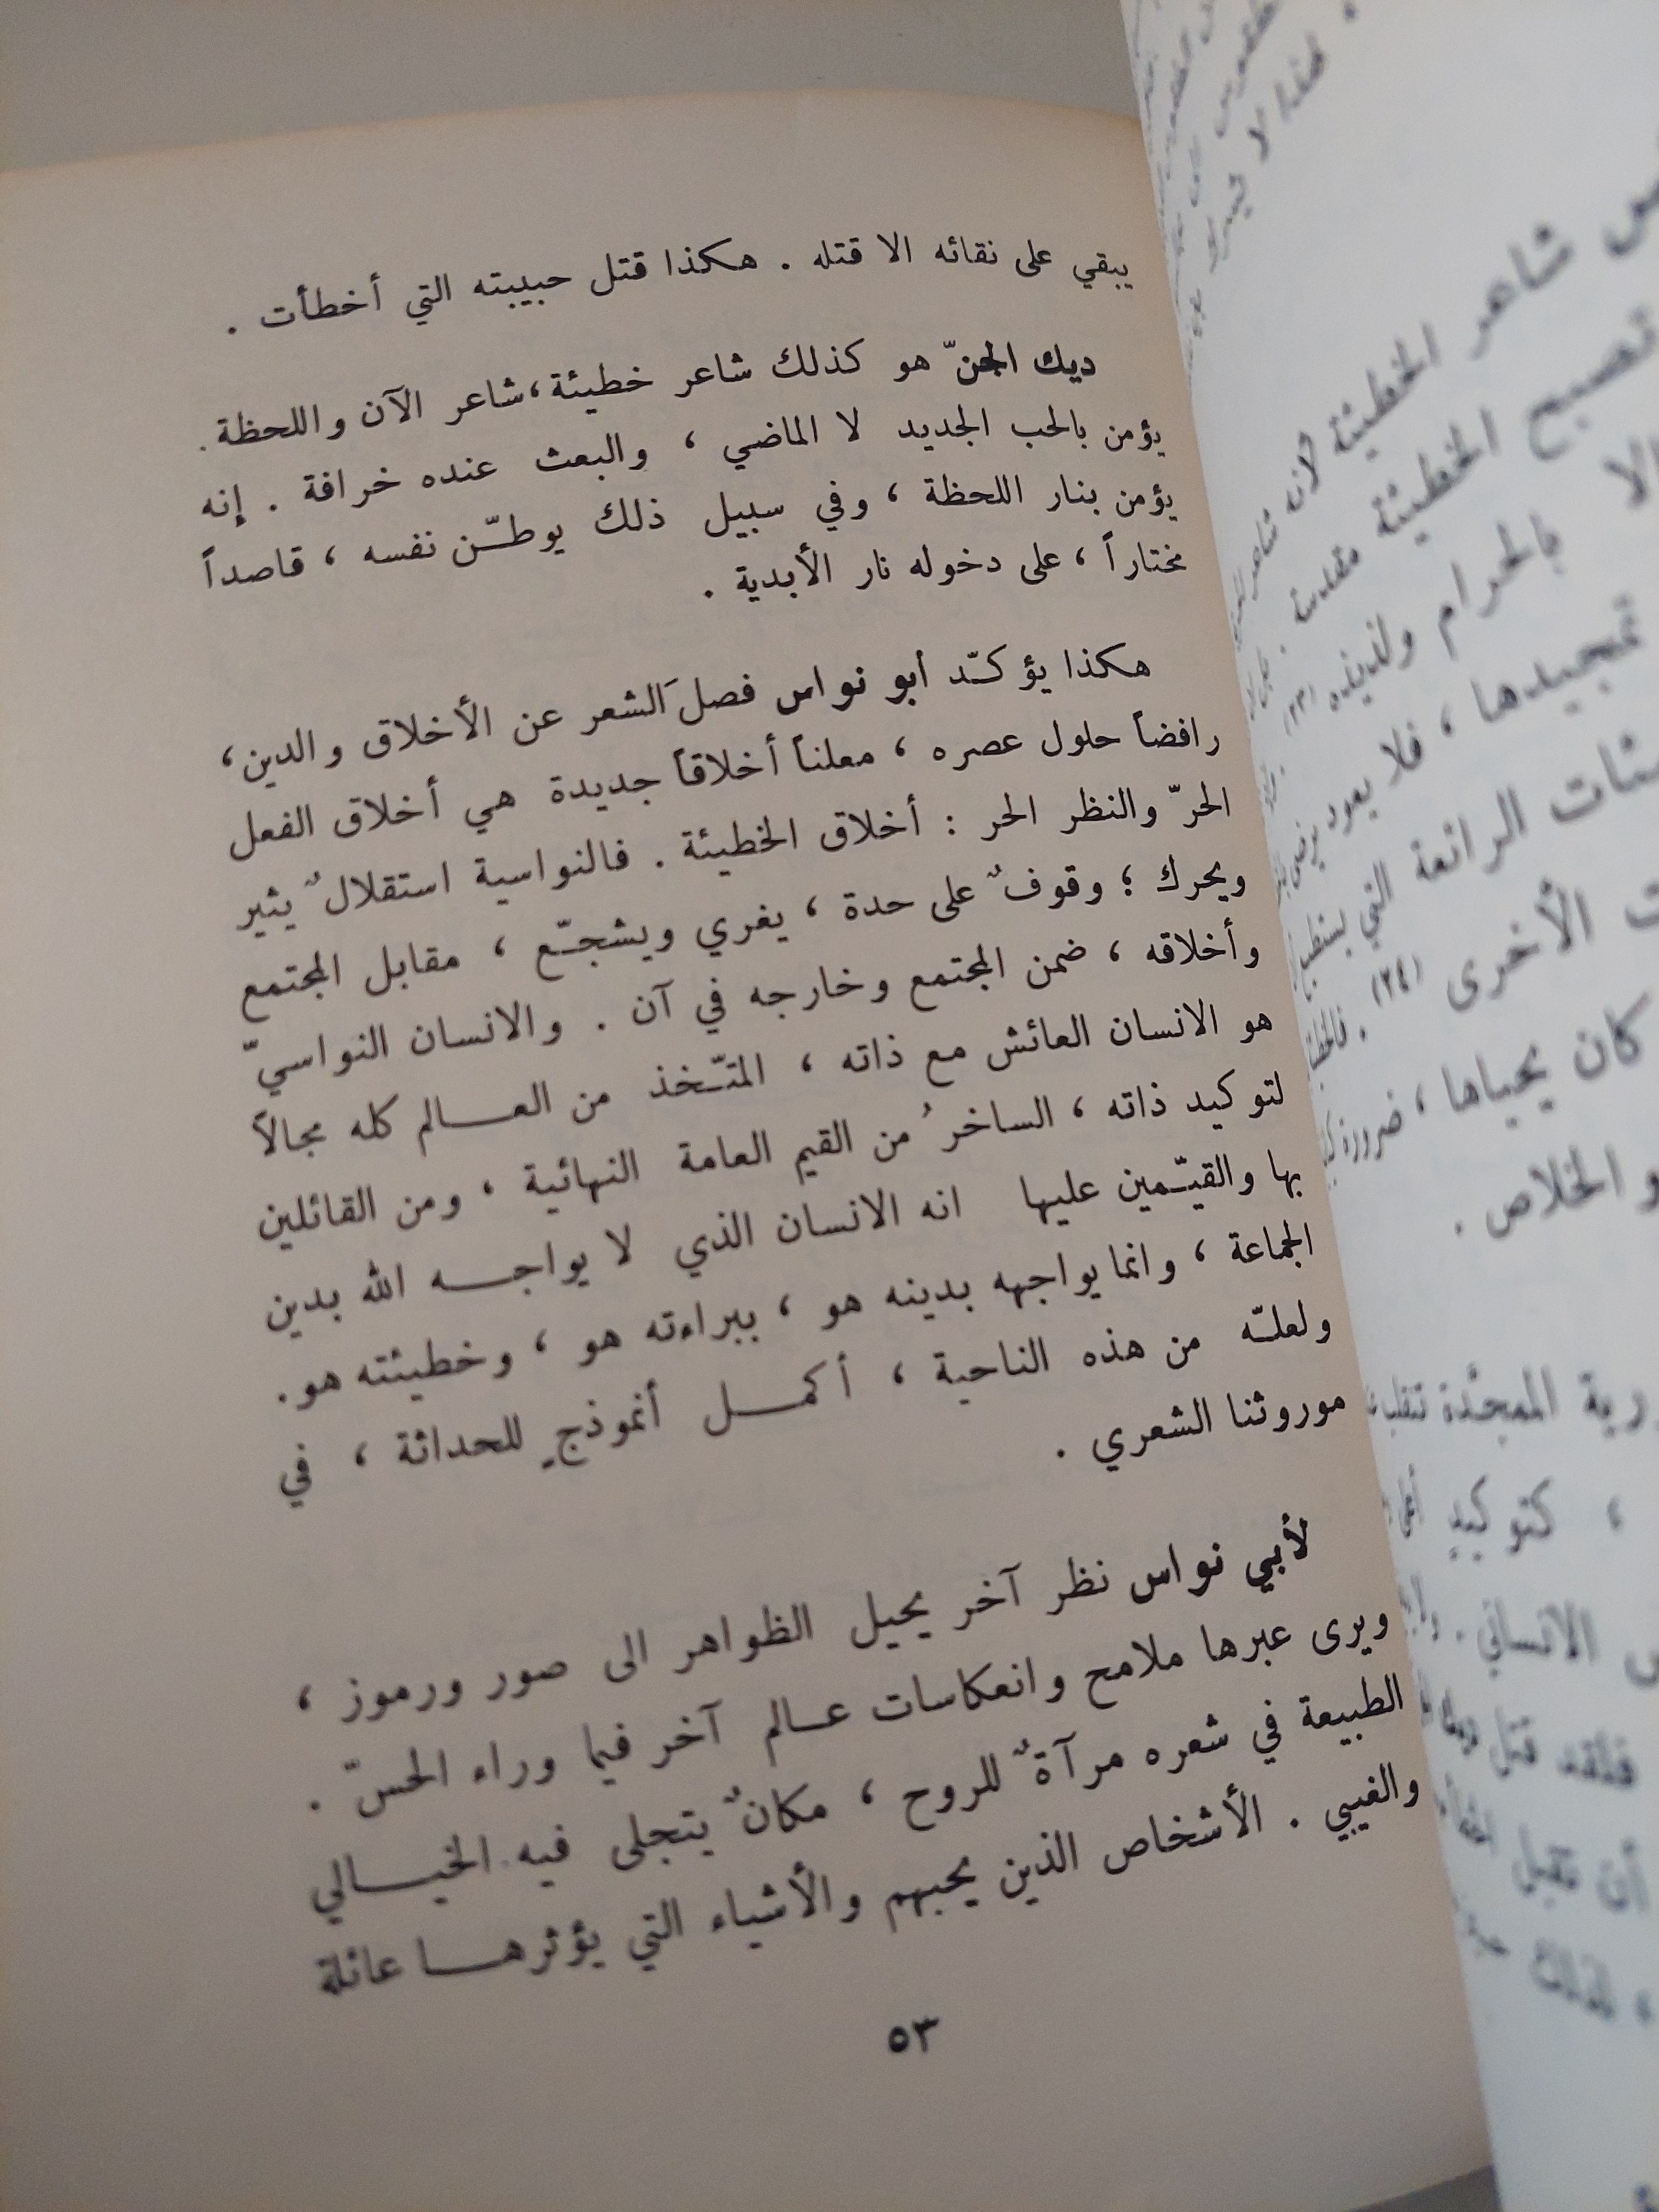 يبقي على نقائه الا قتله . هكذا قتل حبيبته التي أخطأت .
ديك الجنّ هو كذلك شاعر خطيئة، شاعر الآن واللحظة .
يؤمن بالحب الجديد لا الماضي ، والبعث عنده خرافة . إنه
يؤمن بنار اللحظة ، وفي سبيل ذلك يوطّـن نفسه ، قاصداً
مختاراً ، على دخوله نار الأبدية .
هكذا يؤكـّد أبو نواس فصلَ الشعر عن الأخلاق والدين،
رافضاً حلول عصره ، معلناً أخلاقاً جديدة هي أخلاق الفعل
الحرّ والنظر الحر : أخلاق الخطيئة . فالنواسية استقلالٌ يثير
ويحرك ؛ وقوفٌ على حدة ، يغري ويشجـّع ، مقابل المجتمع
وأخلاقه ، ضمن المجتمع وخارجه في آن . والانسان النواسيّ
هو الانسان العائش مع ذاته ، المتـّخذ من العـالم كله مجالاً
لتوكيد ذاته ، الساخرُ من القيم العامة النهائية ، ومن القائلين
بها والقيـّمين عليها انه الانسان الذي لا يواجـه الله بدين
الجماعة ، وانما يواجهه بدينه هو ، ببراءته هو ، وخطيئته هو.
ولعلـّه من هذه الناحية ، أكمـل أنموذجٍ للحداثة ، في
موروثنا الشعري .
لأبي نواس نظر آخر يحيل الظواهر الى صور ورموز ،
ويرى عبرها ملامح وانعكاسات عـالم آخر فيما وراء الحسّ .
الطبيعة في شعره مرآةٌ للروح ، مكانٌ يتجلى فيه الخيـالي
والغيبي . الأشخاص الذين يحبهم والأشياء التي يؤثرهـا عائلة
٥٣
شاعر الخطيئة لأنه شاعر
تصبح الخطيئة مقدسة .
الا بالحرام ولذيذه (٢٣)
تمجيدها ، فلا يعود يرضى
الرائعة التي
الأخرى (٢٤) .
كان يحياها ، ضرورة
والخلاص .
الممجّدة
، كتوكيدٍ
الانساني .
فلقد قتل
أن تقبل